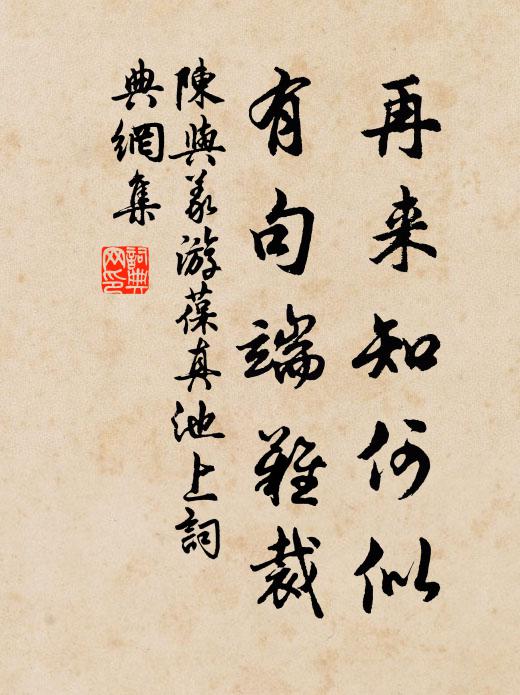 再来知何似
有句端難裁
陳與義游葆真池上詞
典網集
詞典
网印